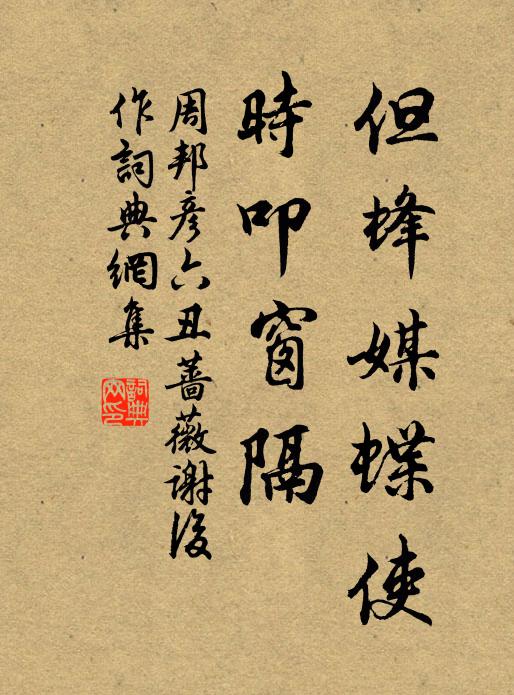 但蜂媒蝶使
時叩窗隔
周邦彥六丑薔薇謝後
作詞典網集
詞典
网印